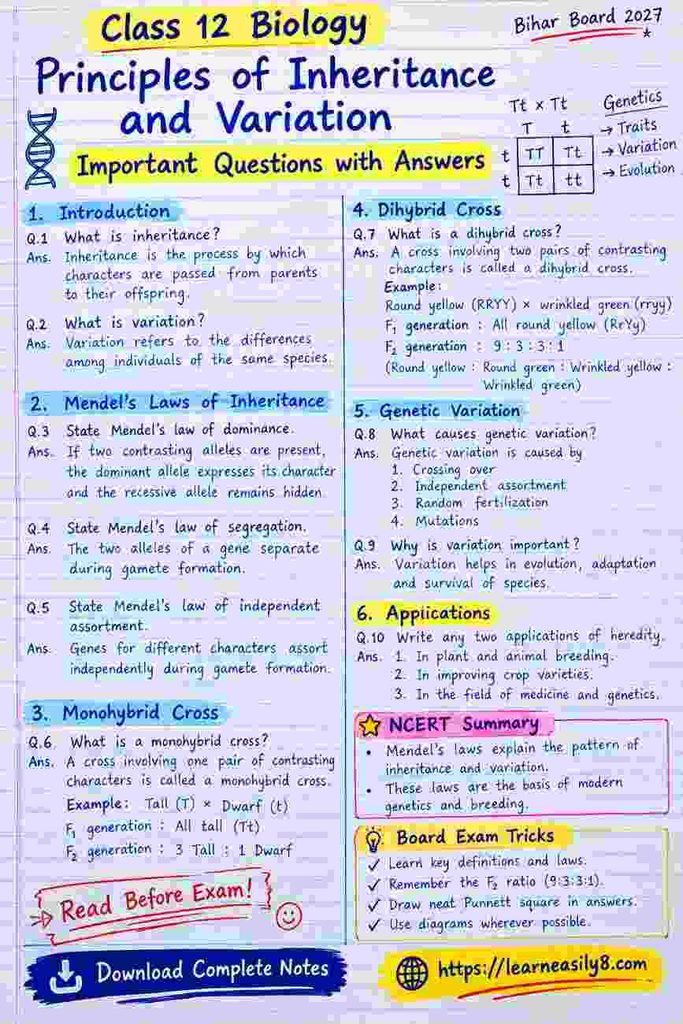 Class 12 Biology
Bihar Board 2027
Principles of Inheritance
and Variation
Important Questions with Answers
Tt × Tt
T t
t TT Tt
t Tt tt
Genetics
→ Traits
→ Variation
→ Evolution
1. Introduction
Q.1 What is inheritance?
Ans. Inheritance is the process by which
characters are passed from parents
to their offspring.
Q.2 What is variation?
Ans. Variation refers to the differences
among individuals of the same species.
2. Mendel's Laws of Inheritance
Q.3 State Mendel's law of dominance.
Ans. If two contrasting alleles are present,
the dominant allele expresses its character
and the recessive allele remains hidden.
Q.4 State Mendel's law of segregation.
Ans. The two alleles of a gene separate
during gamete formation.
Q.5 State Mendel's law of independent
assortment.
Ans. Genes for different characters assort
independently during gamete formation.
3. Monohybrid Cross
Q.6 What is a monohybrid cross?
Ans. A cross involving one pair of contrasting
characters is called a monohybrid cross.
Example: Tall (T) × Dwarf (t)
F₁ generation : All tall (Tt)
F₂ generation : 3 Tall : 1 Dwarf
Read Before Exam!
4. Dihybrid Cross
Q.7 What is a dihybrid cross?
Ans. A cross involving two pairs of contrasting
characters is called a dihybrid cross.
Example:
Round yellow (RRYY) × wrinkled green (rryy)
F₁ generation : All round yellow (RrYy)
F₂ generation : 9 : 3 : 3 : 1
(Round yellow : Round green : Wrinkled yellow :
Wrinkled green)
5. Genetic Variation
Q.8 What causes genetic variation?
Ans. Genetic variation is caused by
1. Crossing over
2. Independent assortment
3. Random fertilization
4. Mutations
Q.9 Why is variation important?
Ans. Variation helps in evolution, adaptation
and survival of species.
6. Applications
Q.10 Write any two applications of heredity.
Ans. 1. In plant and animal breeding.
2. In improving crop varieties.
3. In the field of medicine and genetics.
NCERT Summary
• Mendel's laws explain the pattern of
inheritance and variation.
• These laws are the basis of modern
genetics and breeding.
Board Exam Tricks
✓ Learn key definitions and laws.
✓ Remember the F₂ ratio (9:3:3:1).
✓ Draw neat Punnett square in answers.
✓ Use diagrams wherever possible.
Download Complete Notes
https://learneasily8.com